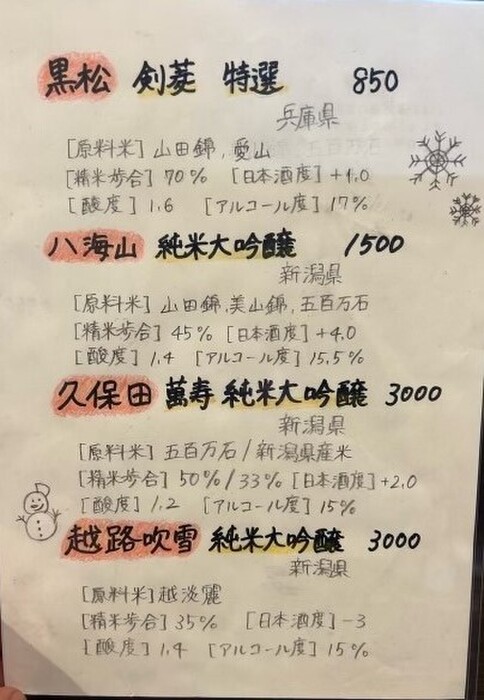 黒松 剣菱 特選 850
兵庫県
[原料米] 山田錦, 愛山
[精米歩合] 70% [日本酒度] +1.0
[酸度] 1.6 [アルコール度] 17%
八海山 純米大吟醸 1500
新潟県
[原料米] 山田錦,美山錦,五百万石
[精米歩合] 45% [日本酒度] +4.0
[酸度] 1.4 [アルコール度] 15.5%
久保田 萬寿 純米大吟醸 3000
新潟県
[原料米] 五百万石/新潟県産米
[精米歩合] 50%/33% [日本酒度] +2.0
[酸度] 1.2 [アルコール度] 15%
越路吹雪 純米大吟醸 3000
新潟県
[原料米] 越淡麗
[精米歩合] 35% [日本酒度] -3
[酸度] 1.4 [アルコール度] 15%